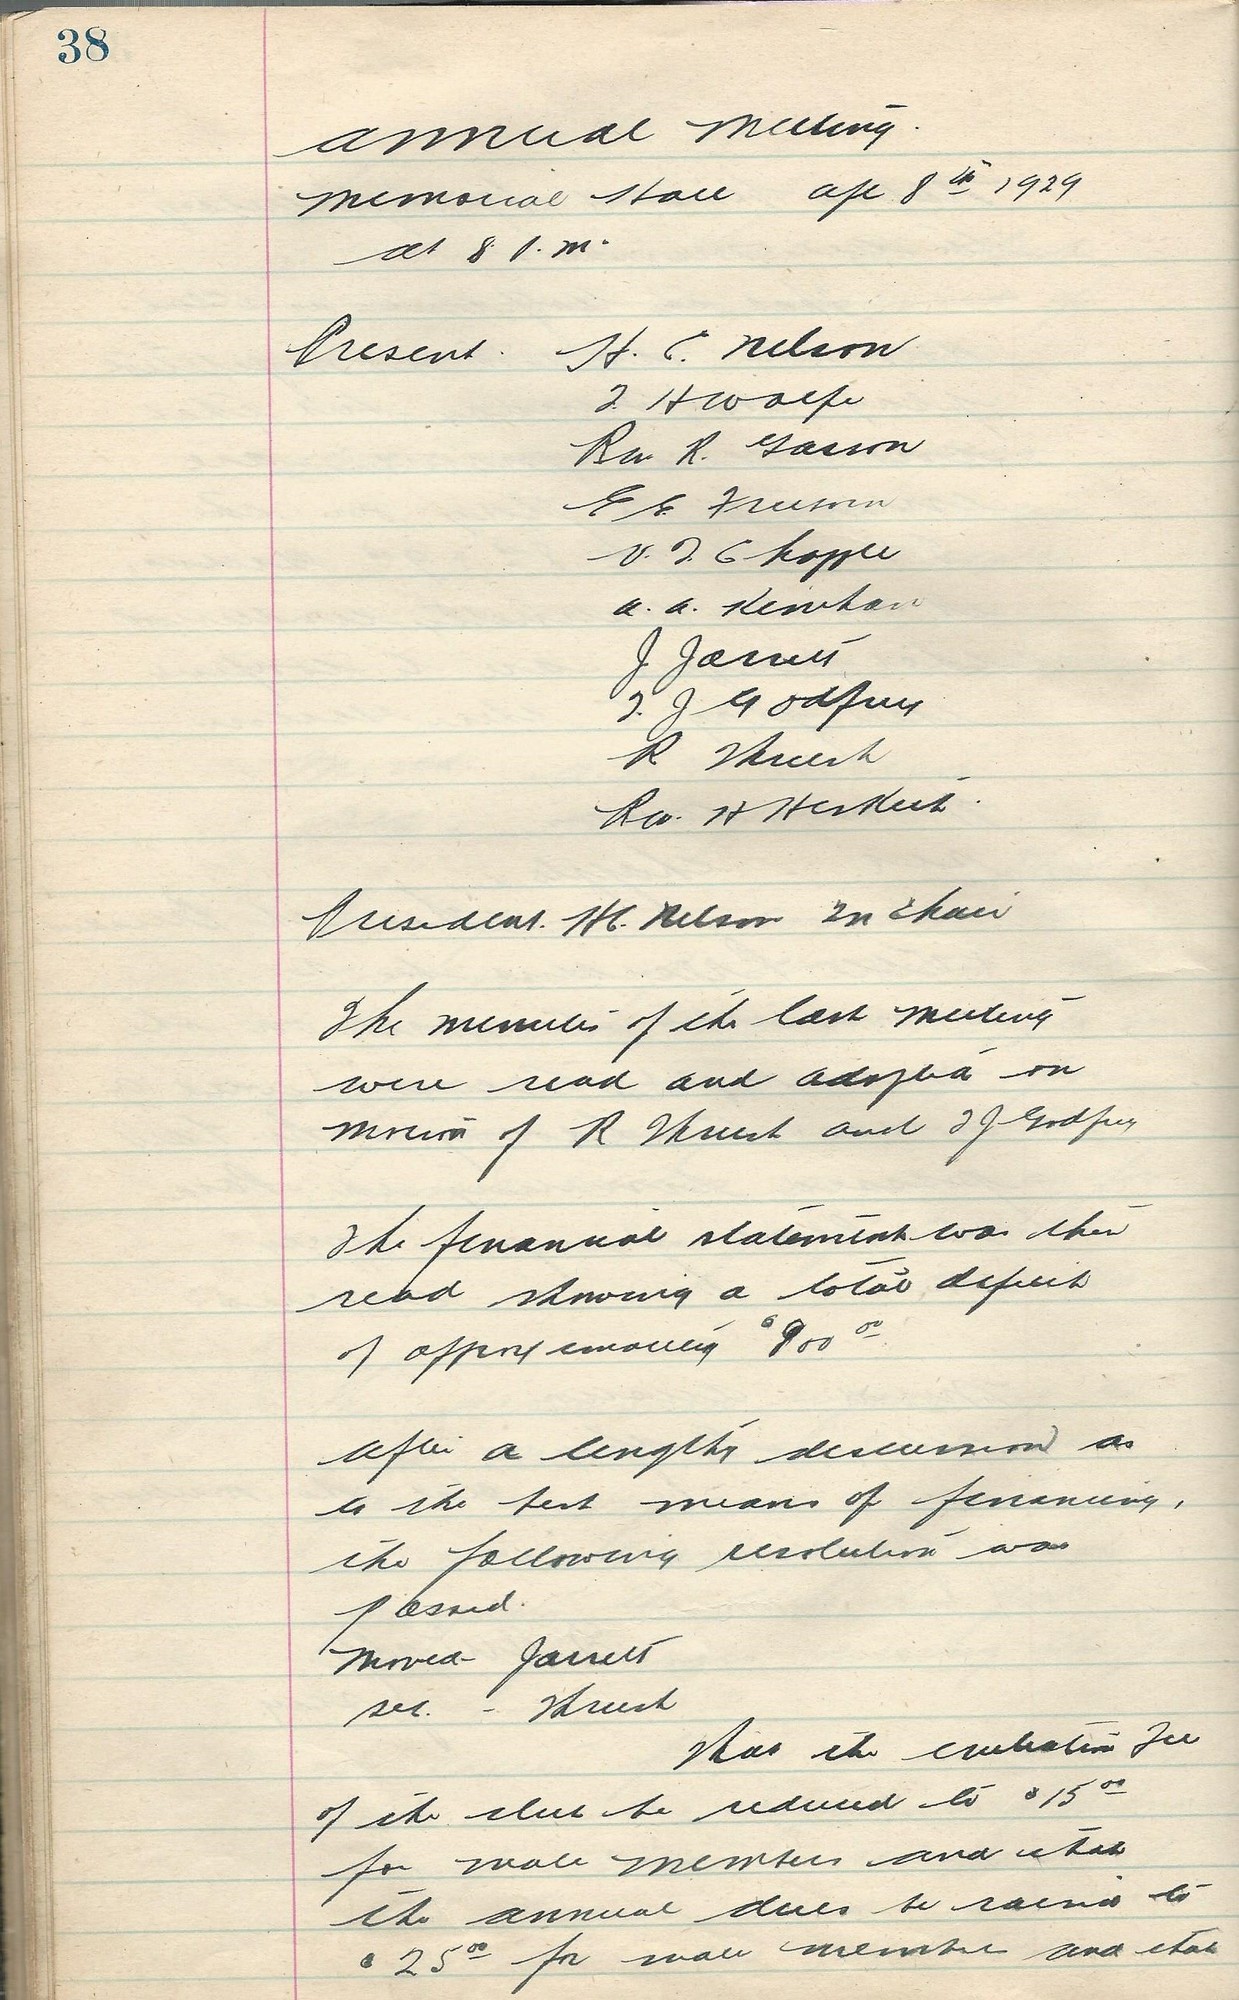 38
Annual Meeting.
Memorial Hall Apl 8th 1929
at 8 P.M.
Present. H. C. Nelson
F. H Wolfe
Rev R. Gasson
E E Freeson
V. F. Chapple
A. A. Kewhan
J Jarrett
F. J Godfrey
R Thrush
Rev. H Heskett.
President. H C. Nelson In Chair
The minutes of the last meeting
were read and adopted on
motion of R Thrush and F J Godfrey
The financial statement was then
read showing a total deficit
of approximately $900 00
After a lengthy discussion as
to the best means of financing,
the following resolution was
passed.
Moved - Jarrett
sec. - Thrush
That the Fee
of the club be reduced to $15 00
for male members and that
the annual dues be raised to
$25 00 for male members and that